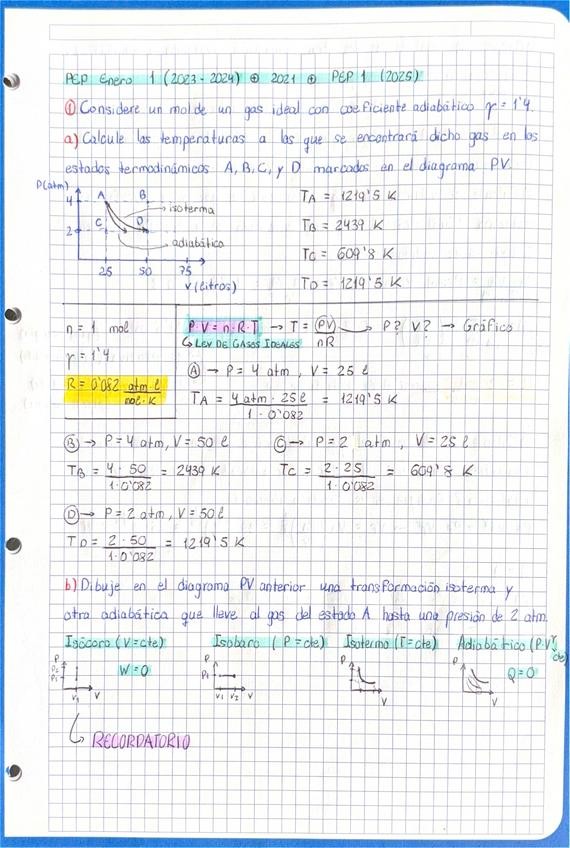 PEP Enero 1 (2023-2024) ⊕ 2021 ⊕ PEP 1 (2025)
① Considere un mol de un gas ideal con coeficiente adiabático γ = 1'4.
a) Calcule las temperaturas a las que se encontrará dicho gas en los
estados termodinámicos A, B, C, y D marcados en el diagrama PV.
P(atm)
4
2
A
B
C
D
isoterma
adiabática
25 50 75
V (litros)
TA = 1219'5 K
TB = 2439 K
TC = 609'8 K
TD = 1219'5 K
n = 1 mol
γ = 1'4
R = 0'082 atm·l / mol·K
P·V = n·R·T → T = (PV) / nR → P? V? → Gráfico
↳ LEY DE GASES IDEALES
Ⓐ → P = 4 atm, V = 25 l
TA = 4 atm · 25 l / 1 · 0'082 = 1219'5 K
Ⓑ → P = 4 atm, V = 50 l
TB = 4 · 50 / 1 · 0'082 = 2439 K
Ⓒ → P = 2 atm, V = 25 l
TC = 2 · 25 / 1 · 0'082 = 609'8 K
Ⓓ → P = 2 atm, V = 50 l
TD = 2 · 50 / 1 · 0'082 = 1219'5 K
b) Dibuje en el diagrama PV anterior una transformación isoterma y
otra adiabática que lleve al gas del estado A hasta una presión de 2 atm.
Isócoro (V=cte)
P
V1 V
W = 0
Isobaro (P=cte)
P
P1
V1 V2 V
Isotermo (T=cte)
P
V
Adiabático (P·Vγ cte)
P
V
Q = 0
↳ RECORDATORIO